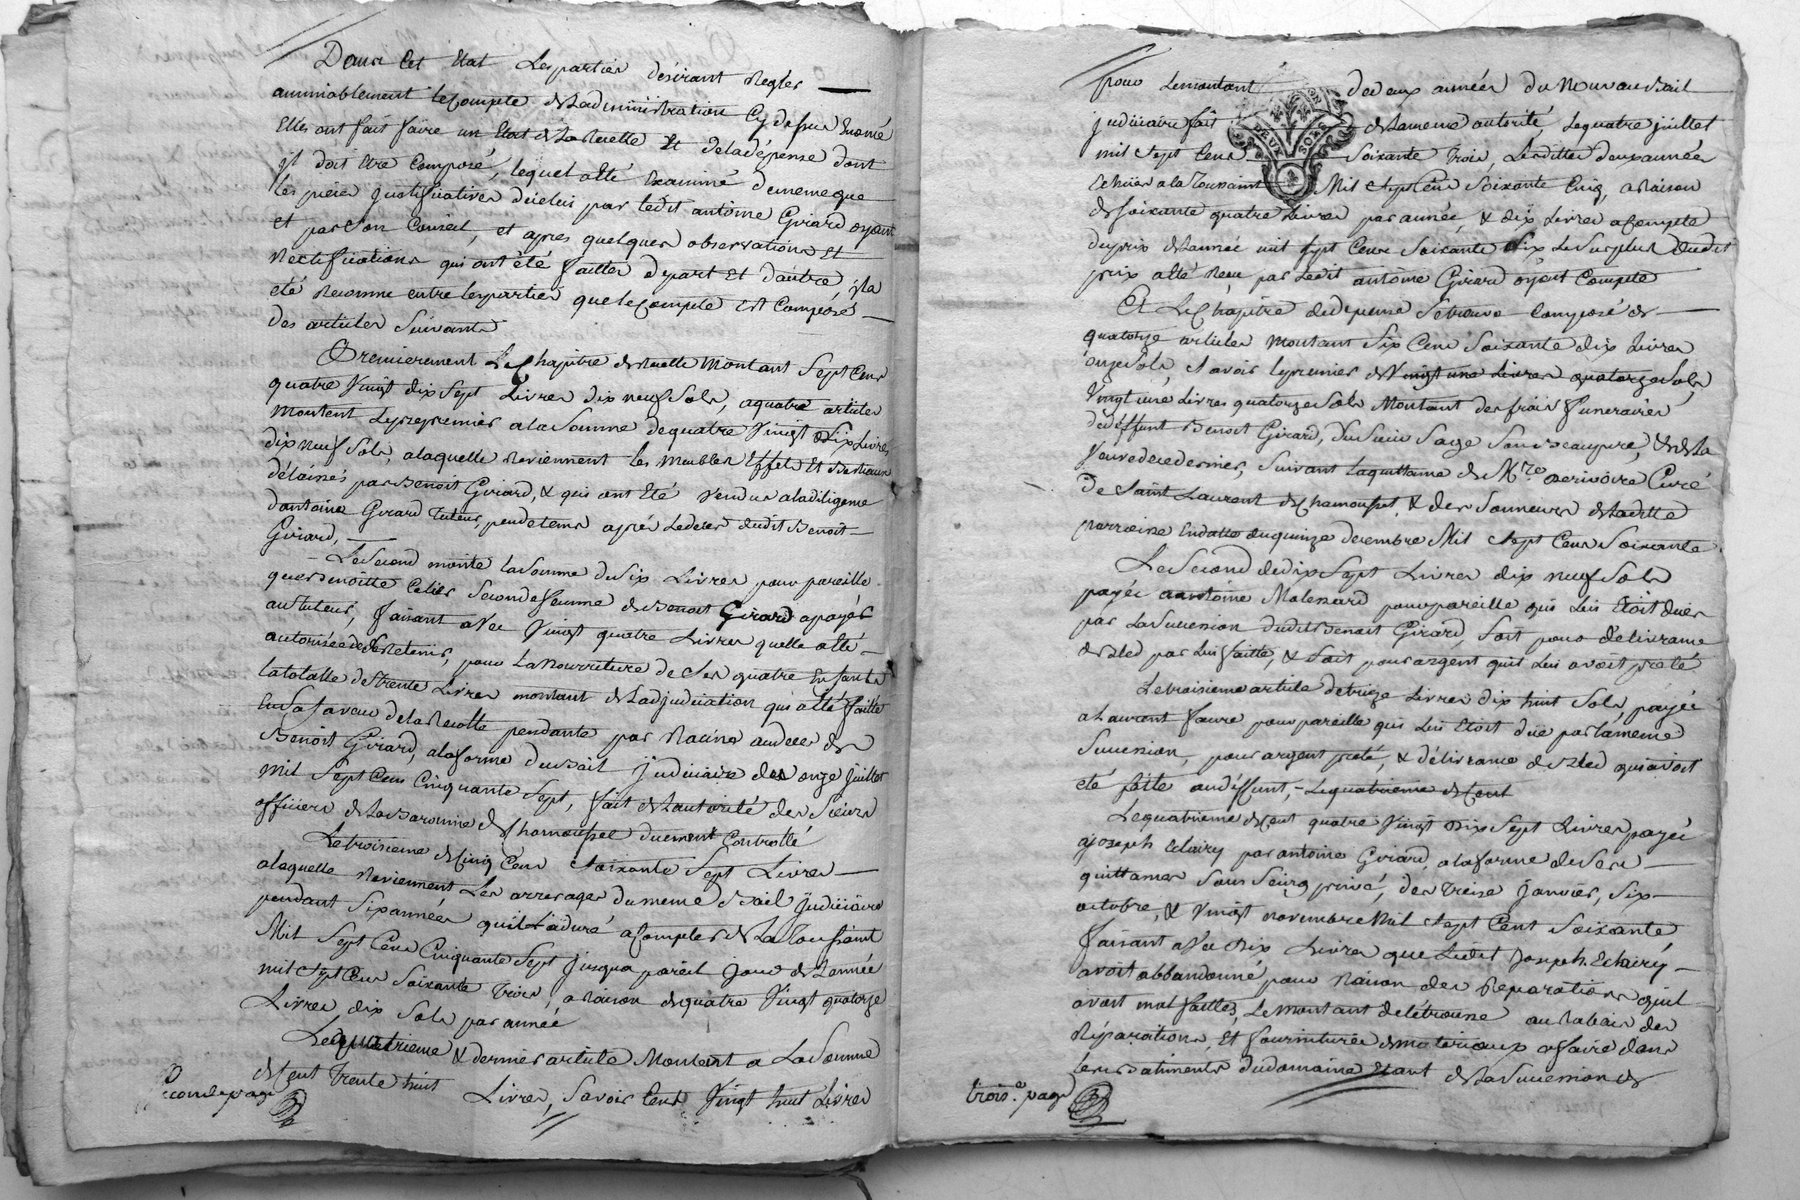 Dans Cet Etat Les parties désirant Regler
ammiablement le Compte de Ladministration Cy dessus Enoncé
Elles ont fait faire un Etat de La Recette Et de la dépense dont
il doit Etre Composé, lequel a été Examiné de meme que
les pieces Justificatives d'icelui par ledit antoine Girard oyant
et par Son Conseil, et apres quelques observations Et
Rectifications qui ont été faittes de part Et d'autre, il a
eté Reconnu entre les parties que le Compte Est Composé
des articles Suivants
Premierement Le Chapitre de Recette Montant Sept Cens
quatre Vingt dix Sept Livres dix neuf Sols, a quatre articles
Montent Le premier a la Somme de quatre Vingt Dix Livres
dix neuf Sols, a laquelle Reviennent les Meubles Effets Et Bestiaux
délaissés par Benoit Girard, & qui ont Eté Vendus a la diligence
d'antoine Girard Tuteur, peu de tems après Le deces dudit Benoit
Girard,
Le Second monte la Somme du Six Livres pour pareille
que Benoitte Celier Seconde femme de Benoit Girard a payée
au tuteur, faisant avec Vingt quatre Livres quelle a été
autorisée de Retenir, pour La Nourriture de Ses quatre Enfants
la totalle de trente Livres montant de Ladjudication qui a été faitte
En Sa faveur de la Recolte pendante par Racine au deces de
Benoit Girard, a la forme du Bail Judiciaire des onze Juillet
mil Sept Cens Cinquante Sept, fait de Lautorité des Sieurs
officiers de La Baronnie de Chamousset duement Controllé
Le troisieme de Cinq Cens Soixante Sept Livres
a laquelle Reviennent Les arrerages du meme Bail Judiciaire
pendant Six années qu'il a duré a Compter de La Toussaint
Mil Sept Cens Cinquante Sept Jusqua pareil Jour de Lannée
mil Sept Cens Soixante Trois, a Raison de quatre Vingt quatorze
Livres dix Sols par année
Le quatrieme & dernier article Montant a La Somme
de Cent Trente huit Livres, Savoir Cent Vingt huit Livres
seconde page
pour Le montant des deux années du Nouveau Bail
judiciaire fait de La meme autorité, Le quatre juillet
mil Sept Cens Soixante Trois, Lesdittes deux années
Echües a la Toussaint Mil Sept Cens Soixante Cinq, a Raison
de Soixante quatre Livres par année, & dix Livres a Compte
du prix de Lannée mil Sept Cens Soixante Six Le Surplus dudit
prix a été Reçu par Ledit antoine Girard oyant Compte
DEUX SOLS
Et Le Chapitre de depense Se trouve Composé de
quatorze articles Montant Six Cens Soixante dix Livres
onze Sols, Savoir le premier de Vingt une Livres quatorze Sols
Vingt une Livres quatorze Sols Montant des frais funeraires
dudéffunt Benoit Girard, du Sieur Sage Son Beaupere, & de La
Veuve de ce dernier, Suivant la quittance de Mre Perivoire Curé
de Saint Laurent de Chamousset & des Sonneurs de Laditte
parroisse En datte du quinze decembre Mil Sept Cens Soixante
Le Second de dix Sept Livres dix neuf Sols
payée a antoine Malezard pour pareille qui Lui Etoit dues
par La Succession dudit Benoit Girard, Soit pour délivrance
de Bled par Lui faitte, & Soit pour argent quil Lui avoit prété
Le troisieme article de treize Livres dix huit Sols payée
a Laurent faure pour pareille qui Lui Etoit düe par la meme
Succession, pour argent preté, & délivrance de Bled qui avoit
eté faitte au défunt, Le quatrieme de Cent
Le quatrieme de Cent quatre Vingt Dix Sept Livres payée
a joseph Eclairy par antoine Girard, a la forme de Ses
quittances Sous Seing privé, des Treize Janvier, Six
octobre, & Vingt novembre Mil Sept Cent Soixante
faisant avec Dix Livres que Ledit Joseph Eclairy
avoit abbandonné pour Raison des Reparations quil
avoit mal faittes, Le Montant de létrousse au Rabais des
Réparations, Et fournitures de materiaux a faire dans
les Batiments du domaine Etant de La Succession de
trois.e page